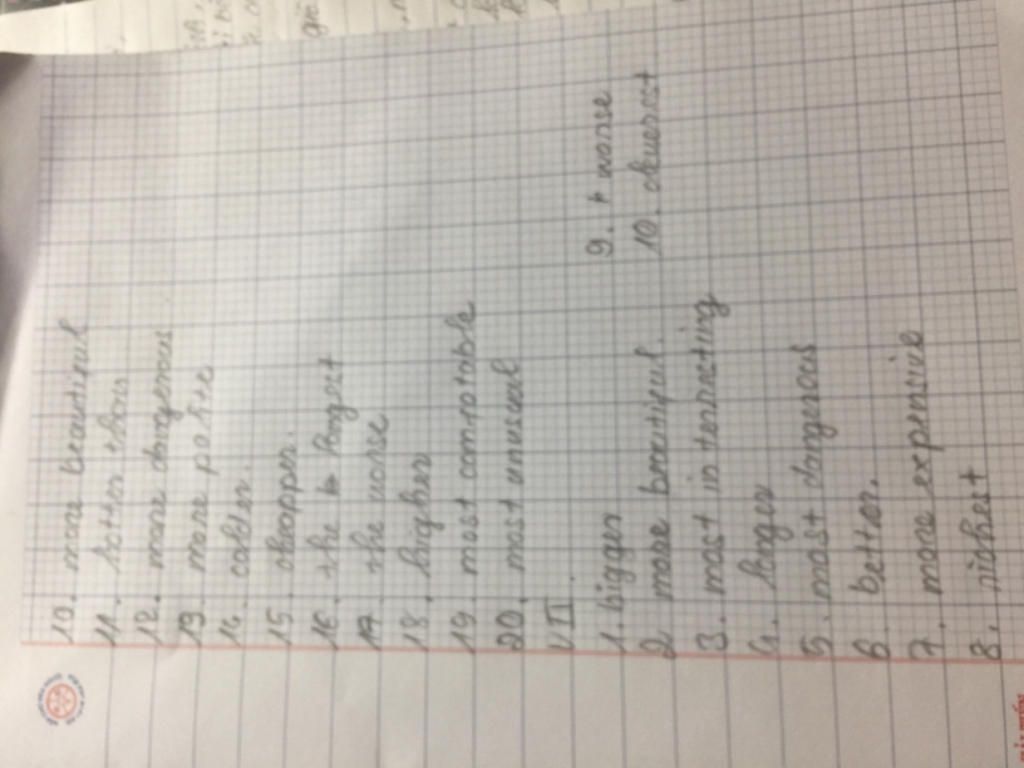 10. more beautiful
11. hotter than
12. more dangerous
13 more polite
14. colder.
15. cheaper.
16. the longest
17. the worse
18. higher
19. most comfotable
20. most unusual
VII.
1. bigger
2 more beautiful.
3. most interracting
4. longer
5. most dangerous
6. better.
7. more expensive
8. richest
9. worse
10. cleverest